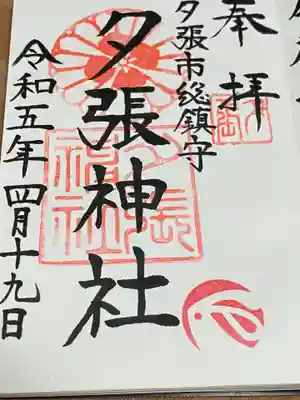 奉拝
夕張市総鎮守
夕張神社
令和五年四月十九日